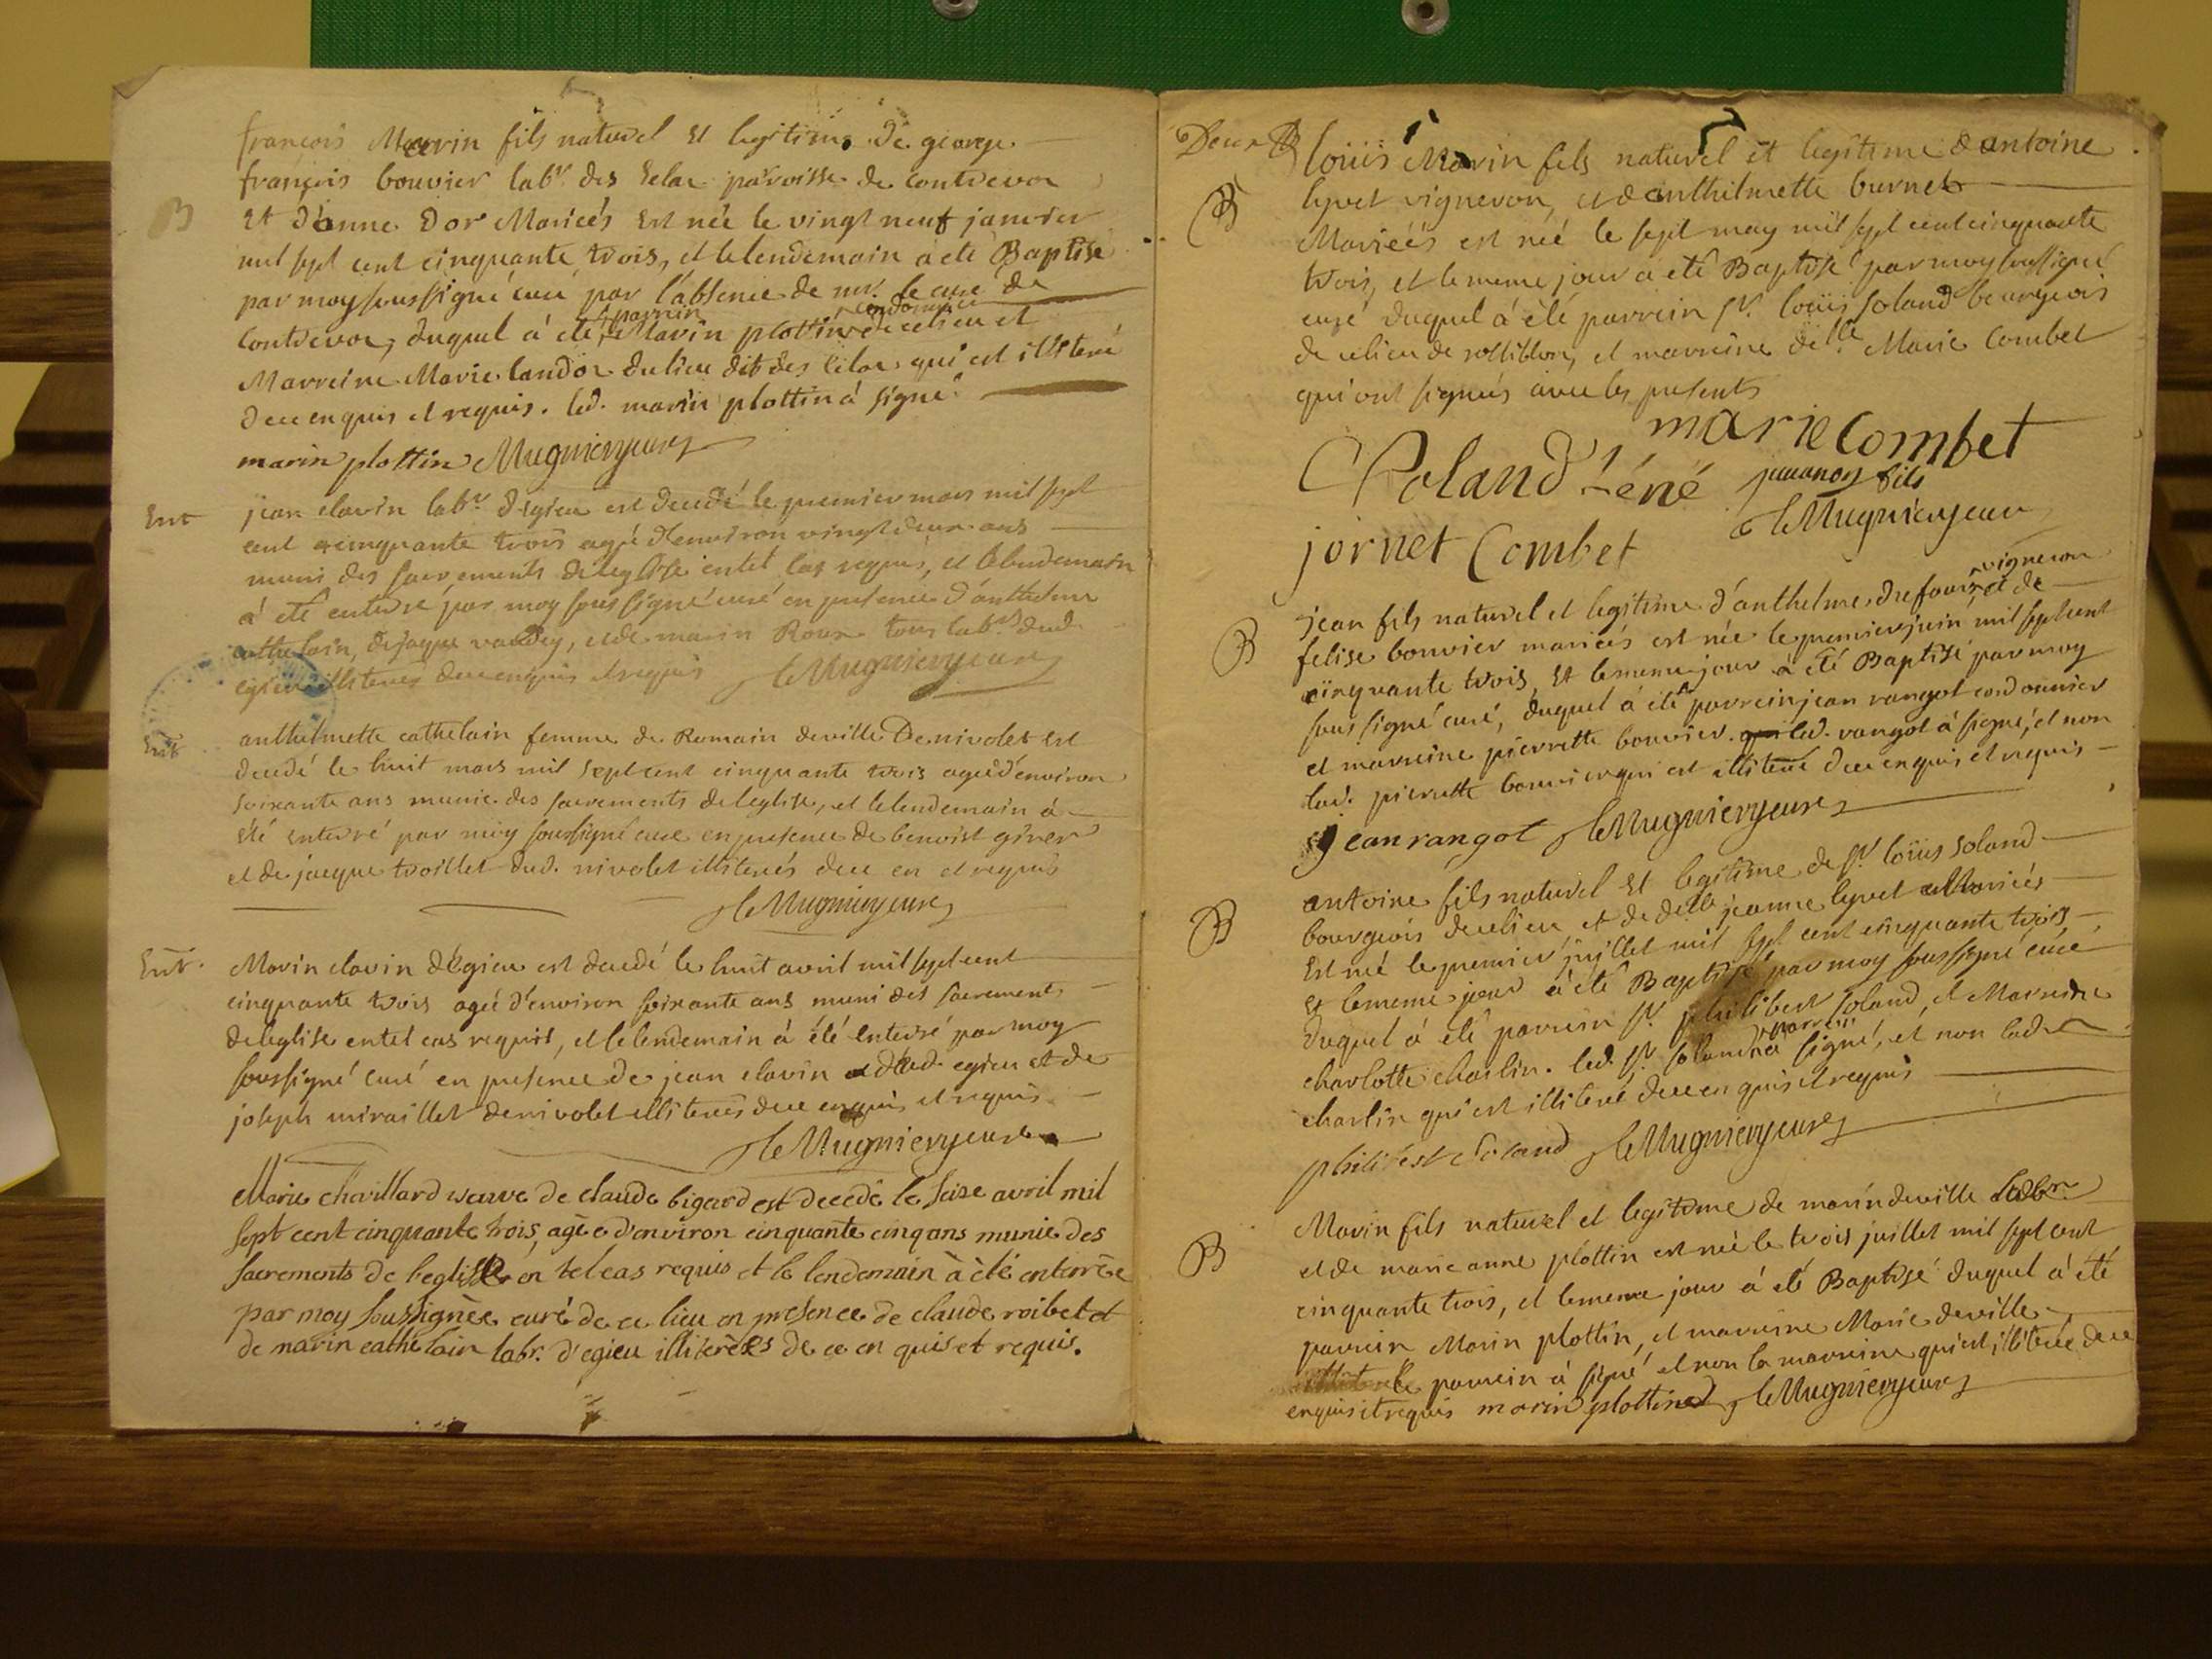 françois Marin fils naturel et legitime de george
françois bouvier labr. des Selar paroisse de contrevoz
B
et d'anne Dor Mariées est née le vingt neuf janvier
mil sept cent cinquante trois, et le lendemain a eté Baptisé
par moy soussigné curé par l'absence de mr. le curé de
contrevoz, duquel à eté parrein Marin plottin cordonnier de ce lieu et
Marreine Marie landoz du lieu dit des Celar qui est illiteré
de ce enquis et requis. led. marin plottin à signé
marin plottin Mugnier curé
Ent
jean clavin labr. degieu est decedé le premier mars mil sept
cent cinquante trois agé d'environ vingt deux ans
muni des sacrements de leglise en tel cas requis, et le lendemain
à eté enterré par moy soussigné curé en presence d'anthelme
cathelain, de jaque vaudey, et de marin Roux tous labrs. dud.
egieu illiterés de ce enquis et requis Mugnier curé
Ent
anthelmette cathelain femme de Romain deville De nivolet est
decedé le huit mars mil sept cent cinquante trois agée d'environ
soixante ans munie des sacrements de leglise, et le lendemain à
été enterré par moy soussigné curé en presence de benoist giner
et de jacque troillet dud. nivolet illiterés de ce en et requis
Mugnier curé
Ent.
Marin clavin dégieu est decedé le huit avril mil sept cent
cinquante trois agé d'environ soixante ans muni des sacrement
de leglise en tel cas requis, et le lendemain à été enterré par moy
soussigné curé en presence de jean clavin dud. egieu et de
joseph miraillet de nivolet illiterés de ce enquis et requis
Mugnier curé
Marie chavillard veuve de claude bigard est decedé le seize avril mil
sept cent cinquante trois, agée d'environ cinquante cinq ans munie des
sacrements de l'eglise en tel cas requis et le lendemain à été enterrée
par moy soussignée curé de ce lieu en presence de claude roibet et
de marin cathelain labr. d'egieu illiterées de ce en quis et requis.
Deux B
loüis Marin fils naturel et legitime d'antoine
B
lyvet vigneron, et d'anthelmette burnet
Mariées est né le sept may mil sept cent cinquante
trois, et le meme jour a eté Baptisé par moy soussigné
curé duquel à été parrein sr. loüis Soland bourgeois
de ce lieu de rossillon, et marreine delle. Marie Combet
qui ont signés avec les presents
marie Combet
Soland
fils
jornet Combet
Mugnier curé
B
jean fils naturel et legitime d'anthelme dufour vigneron et de
felise bouvier mariées est née le premier juin mil sept cent
cinquante trois, et le meme jour à été Baptisé par moy
soussigné curé, duquel à été parrein jean rangot cordonnier
et marreine pierrette bouvier. led. rangot à signé, et non
lad. pierrette bouvier qui est illiteré de ce enquis et requis
jean rangot Mugnier curé
B
antoine fils naturel et legitime de sr. loüis Soland
bourgeois de ce lieu, et de delle jeanne lyvet Mariées
est né le premier juillet mil sept cent cinquante trois
et le meme jour à été Baptisé par moy soussigné curé
duquel à été parrein sr. philibert Soland, et Marreine
charlotte charlin. led. sr. Soland parrein a signé, et non lad.
charlin qui est illiteré de ce enquis et requis
philibert Soland Mugnier curé
B
Marin fils naturel et legitime de marin deville labr.
et de marie anne plottin est né le trois juillet mil sept cent
cinquante trois, et le meme jour à été Baptisé duquel à été
parrein Marin plottin, et marreine Marie deville
le parrein à signé et non la marreine qui est illiterée de ce
enquis et requis marin plottin Mugnier curé